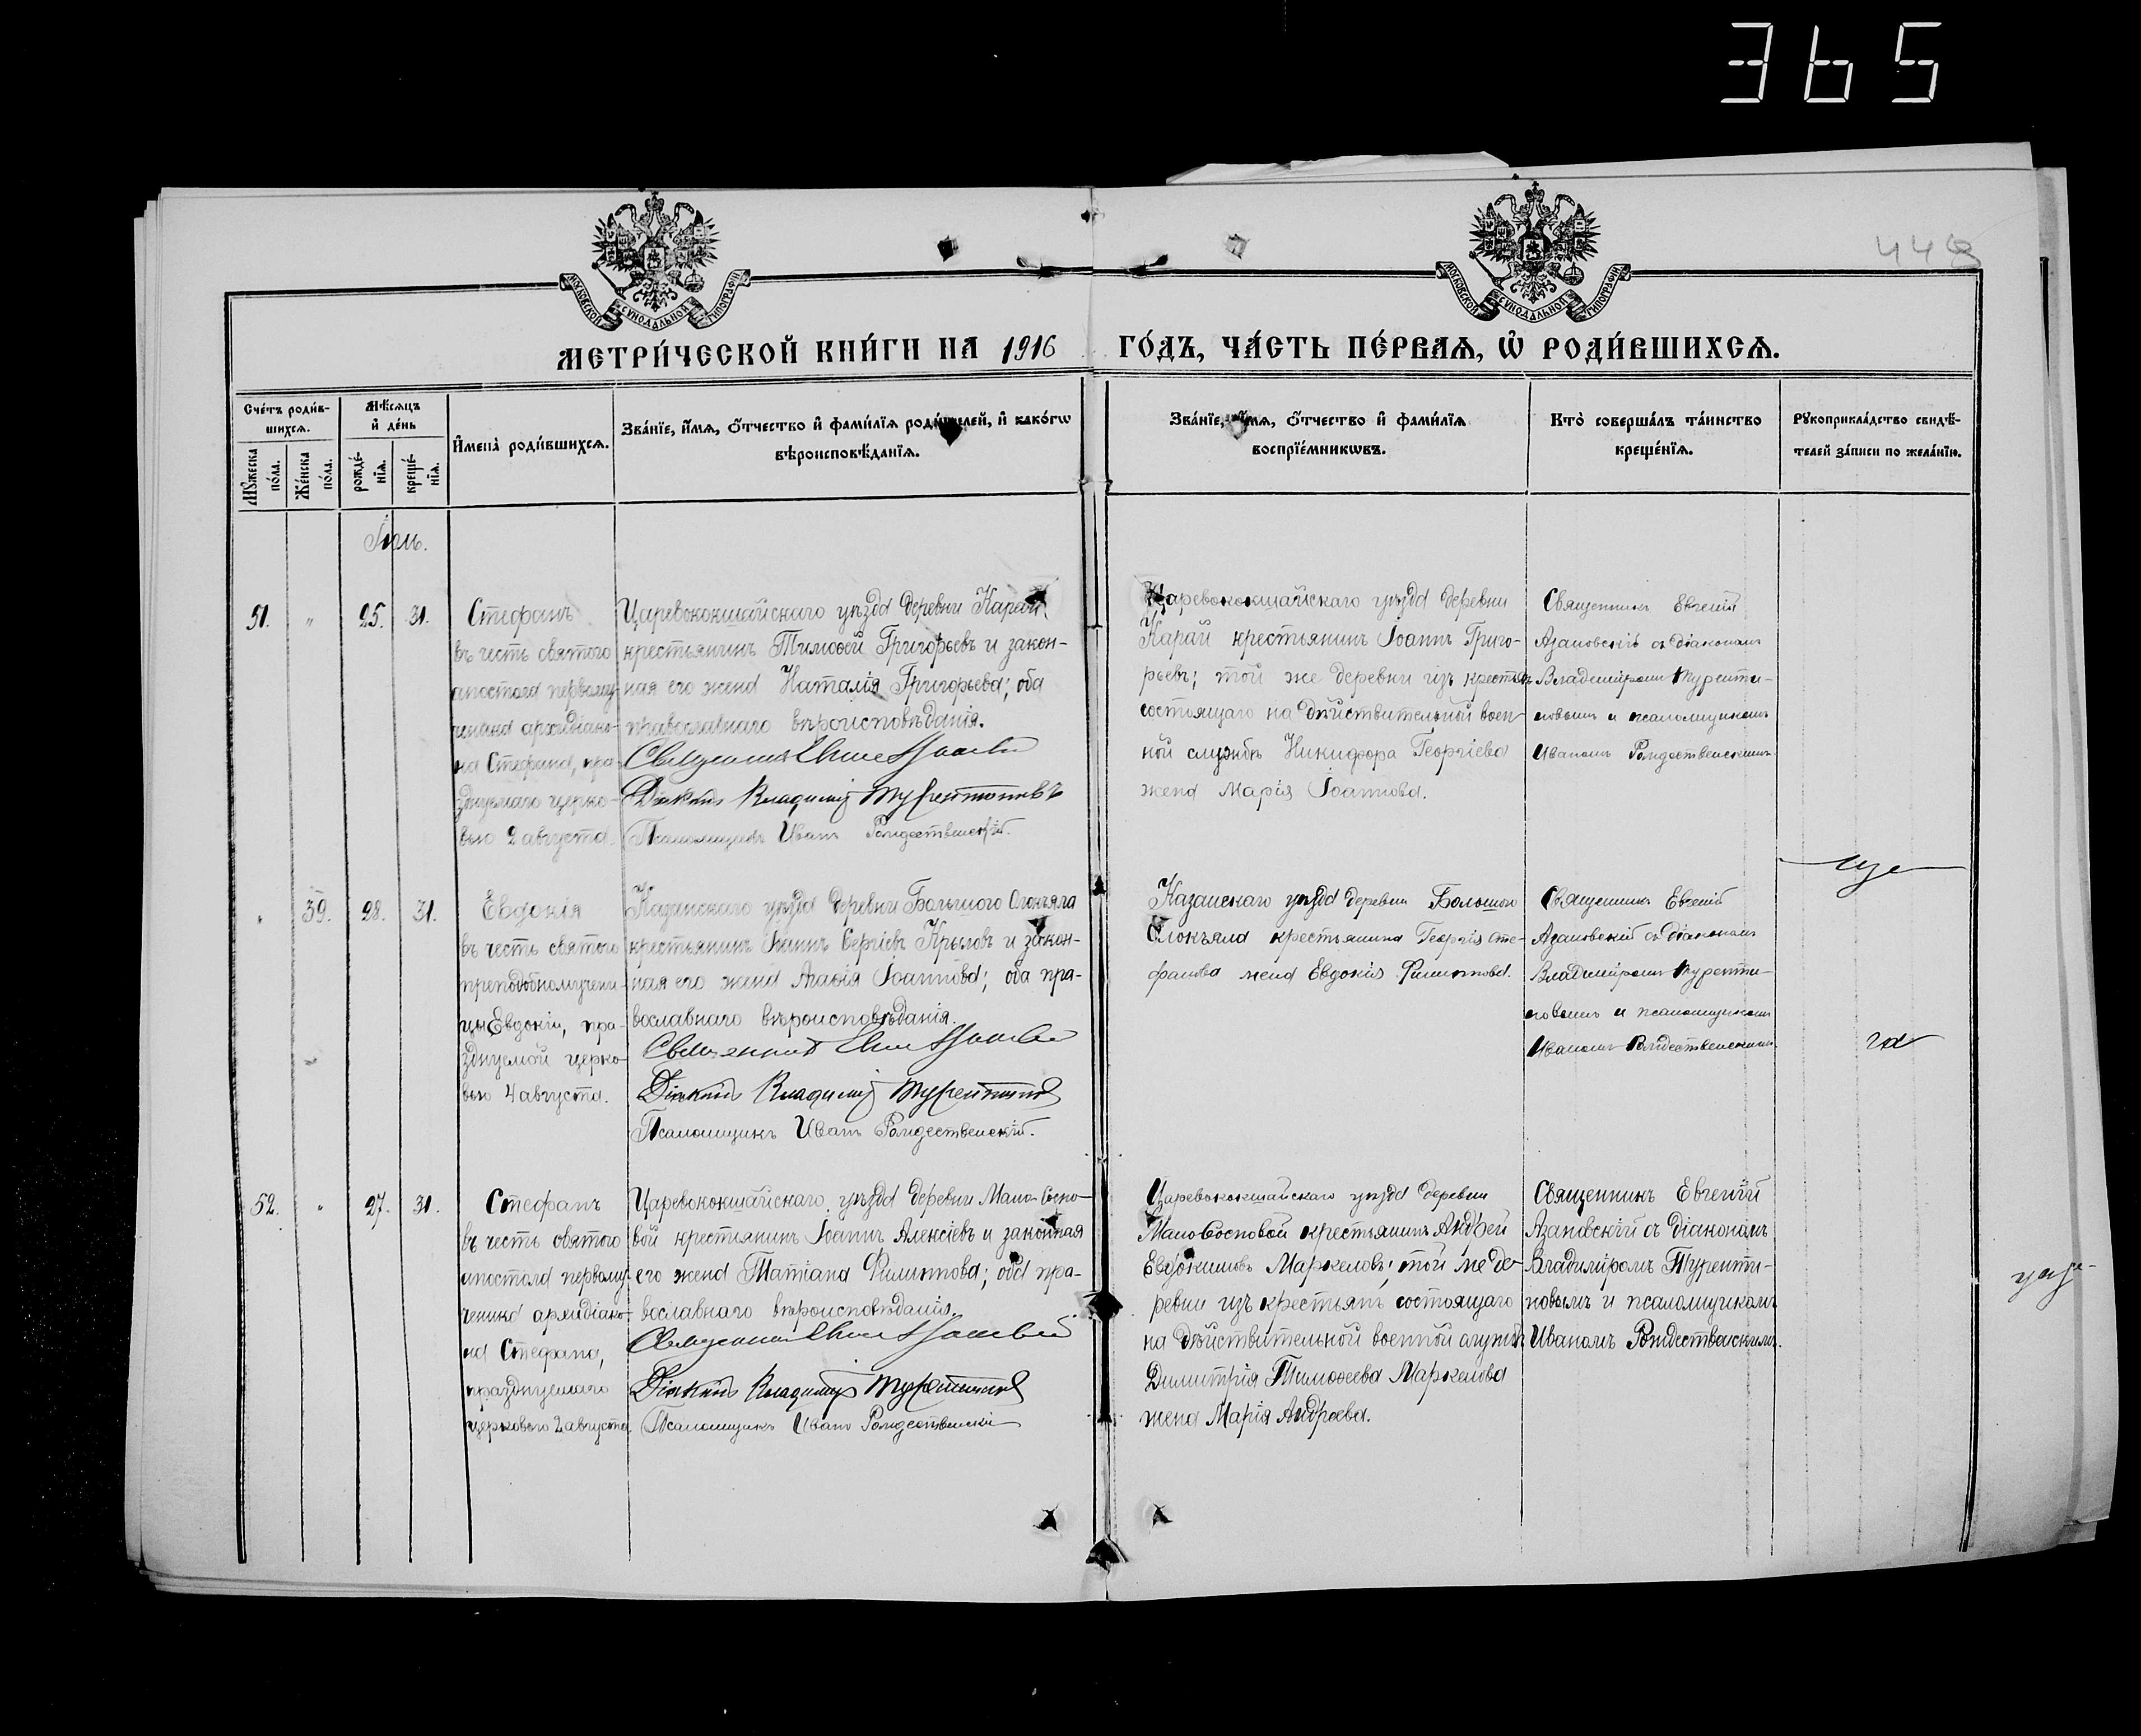 365
448
МОСКОВСКОЙ СѴНОДАЛЬНОЙ ТИПОГРАФІИ
МОСКОВСКОЙ СѴНОДАЛЬНОЙ ТИПОГРАФІИ
МЕТРИ́ЧЕСКОЙ КНИ́ГИ НА 1916 ГО́ДЪ, ЧА́СТЬ ПЕ́РВАѦ, Ѡ РОДИ́ВШИХСѦ.
Сче́тъ роди́в-
шихсѧ.
Мꙋ́жеска по́ла.
Же́нска по́ла.
Мѣ́сѧцъ и де́нь
рожде́-
нїѧ.
креще́-
нїѧ.
Имена̀ роди́вшихсѧ.
Зва́нїе, и́мѧ, ѻ́тчество и фами́лїѧ роди́телей, и како́гѡ
вѣроисповѣ́данїѧ.
Зва́нїе, и́мѧ, ѻ́тчество и фами́лїѧ
воспрїе́мникѡвъ.
Кто̀ соверша́лъ та́инство
креще́нїѧ.
Рꙋкоприкла́дство свидѣ́-
телей за́писи по жела́нїю.
Іюль.
51. " 25. 31.
Стефанъ
въ честь святого
апостола первому-
ченика архидіако-
на Стефана, пра-
зднуемаго церко-
вью 2 августа.
Царевококшайскаго уѣзда деревни Карай
крестьянинъ Тимоѳей Григорьевъ и закон-
ная его жена Наталія Григорьева; оба
православнаго вѣроисповѣданія.
Священникъ
Діаконъ Владимір Турентиновъ
Псаломщикъ Иванъ Рождественскій.
Царевококшайскаго уѣзда деревни
Карай крестьянинъ Іоаннъ Григо-
рьевъ; той же деревни изъ крестьянъ
состоящаго на дѣйствительной воен-
ной службѣ Никифора Георгіева
жена Марія Іоаннова.
Священникъ Евгеній
Азановскій съ діакономъ
Владиміромъ Туренти-
новымъ и псаломщикомъ
Иваномъ Рождественскимъ.
" 39. 28. 31.
Евдокія
въ честь святого
преподобномучени-
цы Евдокіи, пра-
зднуемой церко-
вью 4 августа.
Казанскаго уѣзда деревни Большого
крестьянинъ Іоаннъ Сергіевъ Крыловъ и закон-
ная его жена Агаѳія Іоаннова; оба пра-
вославнаго вѣроисповѣданія.
Священникъ
Діаконъ Владимір Турентиновъ
Псаломщикъ Иванъ Рождественскій.
Казанскаго уѣзда деревни Большого
крестьянина Георгія Сте-
фанова жена Евдокія Филиппова.
Священникъ Евгеній
Азановскій съ діакономъ
Владиміромъ Туренти-
новымъ и псаломщикомъ
Иваномъ Рождественскимъ.
52. " 27. 31.
Стефанъ
въ честь святого
апостола первому-
ченика архидіако-
на Стефана,
празднуемаго
церковью 2 августа
Царевококшайскаго уѣзда деревни Мало-Сосно-
вой крестьянинъ Іоаннъ Алексіевъ и законная
его жена Татіана Филиппова; оба пра-
вославнаго вѣроисповѣданія.
Священникъ
Діаконъ Владимір Турентиновъ
Псаломщикъ Иванъ Рождественскій
Царевококшайскаго уѣзда деревни
Мало-Сосновой крестьянинъ Андрей
Евдокимовъ Маркеловъ; той же де-
ревни изъ крестьянъ состоящаго
на дѣйствительной военной службѣ
Димитрія Тимоѳеева Маркелова
жена Марія Андреева.
Священникъ Евгеній
Азановскій съ діакономъ
Владиміромъ Туренти-
новымъ и псаломщикомъ
Иваномъ Рождественскимъ.